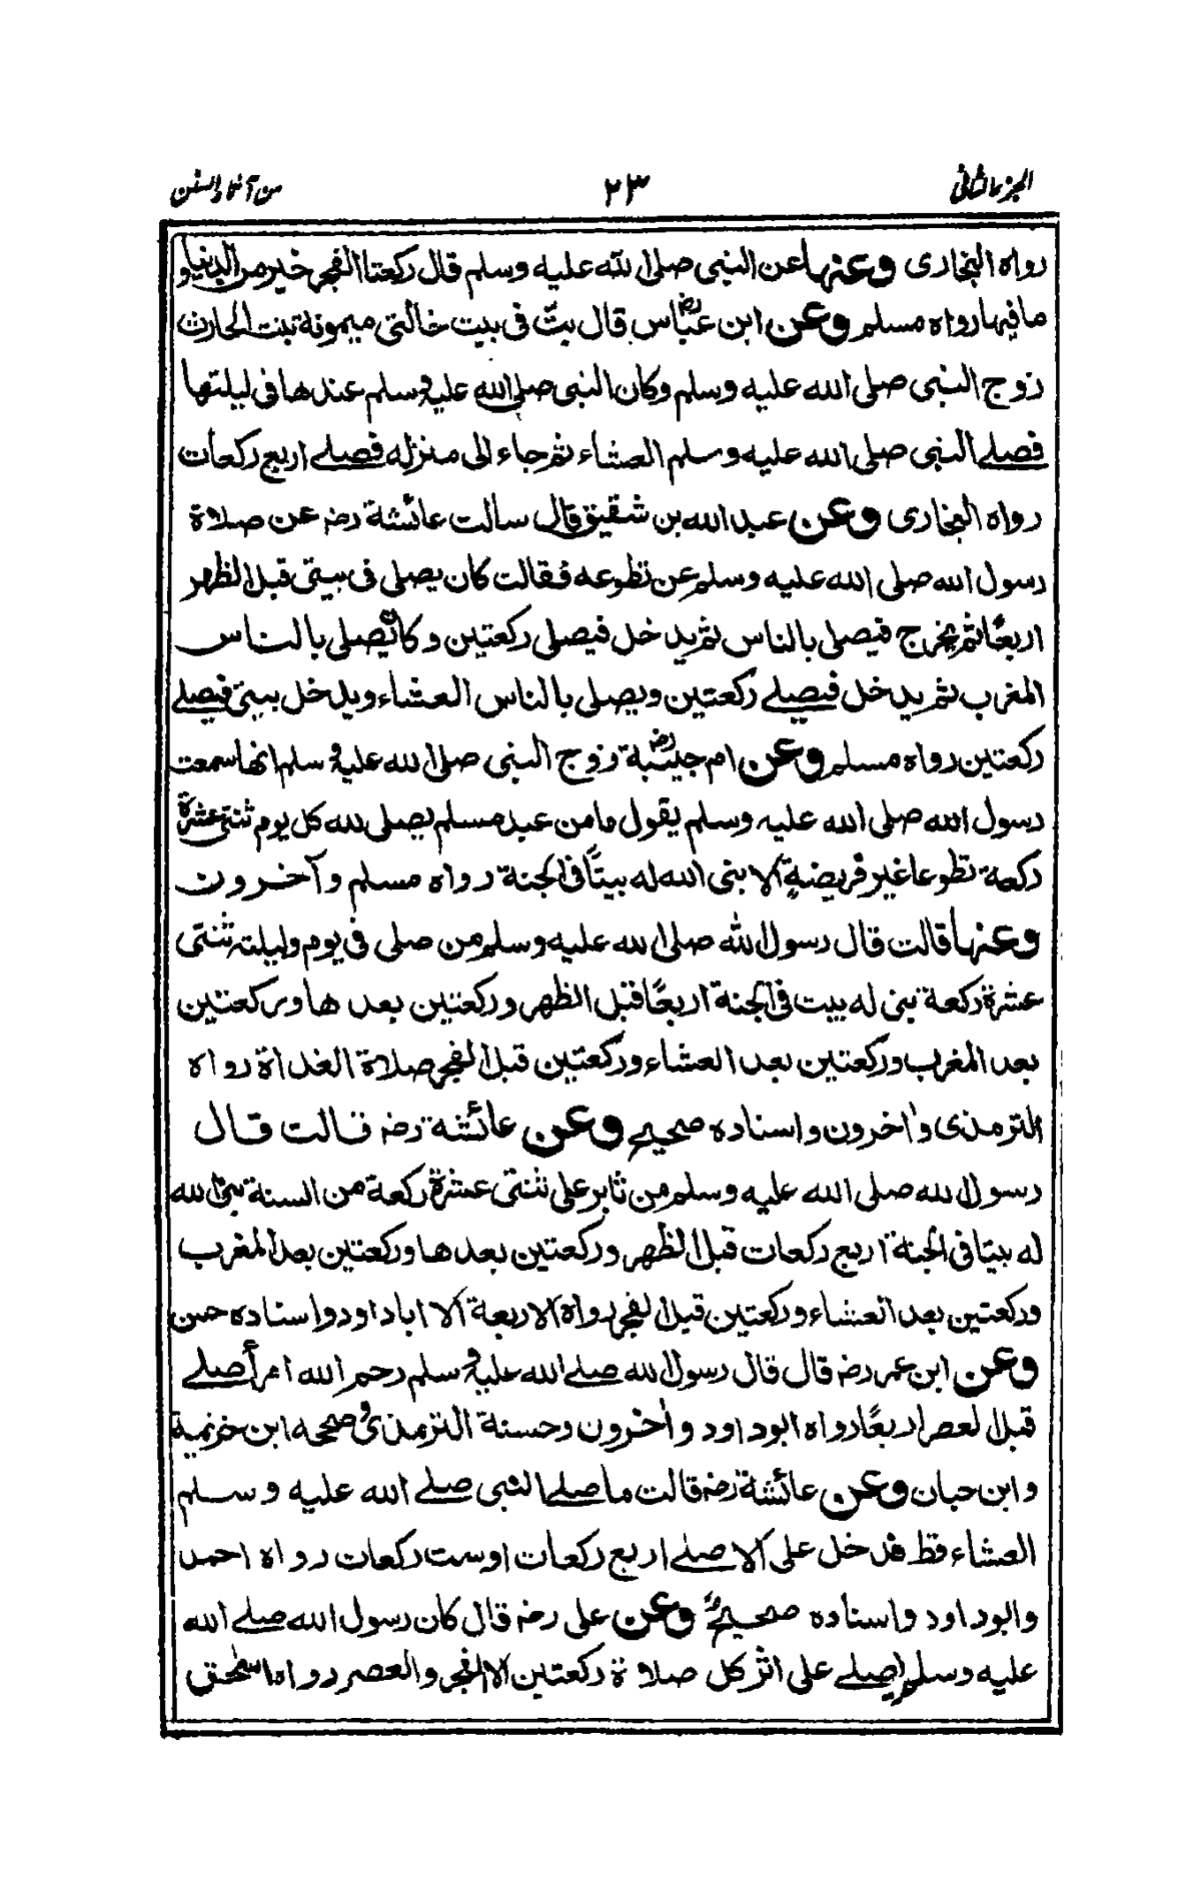 الجزء الثانى ٢٣ من آثار السنن
رواه البخارى وعنها عن النبى صلى الله عليه وسلم قال ركعتا الفجر خير من الدنيا و
ما فيها رواه مسلم وعن ابن عباسؓ قال بتُّ فى بيت خالتى ميمونة بنت الحارث
زوج النبى صلى الله عليه وسلم وكان النبى صلى الله عليه وسلم عندها فى ليلتها
فصلے النبى صلى الله عليه وسلم العشاء ثم جاء الى منزله فصلے اربع ركعات
رواه البخارى وعن عبد الله بن شقيق قال سالت عائشة رضہ عن صلاة
رسول الله صلى الله عليه وسلم عن تطوعه فقالت كان يصلى فى بيتى قبل الظهر
اربعًا ثم يخرج فيصلى بالناس ثم يدخل فيصلى ركعتين وكان يصلى بالناس
المغرب ثم يدخل فيصلے ركعتين ويصلى بالناس العشاء ويدخل بيتى فيصلے
ركعتين رواه مسلم وعن ام حبيبةؓ زوج النبى صلى الله عليه وسلم انها سمعت
رسول الله صلى الله عليه وسلم يقول ما من عبد مسلم يصلى لله كل يوم ثنتى عشرة
ركعة تطوعا غير فريضةٍ الا بنى الله له بيتًا فى الجنة رواه مسلم وآخرون
وعنها قالت قال رسول الله صلى الله عليه وسلم من صلى فى يوم وليلة ثنتى
عشرة ركعة بنى له بيت فى الجنة اربعًا قبل الظهر وركعتين بعدها وركعتين
بعد المغرب وركعتين بعد العشاء وركعتين قبل الفجر صلاة الغداة رواه
الترمذى واٰخرون واسناده صحيح وعن عائشة رضہ قالت قال
رسول الله صلى الله عليه وسلم من ثابر على ثنتى عشرة ركعة من السنة بنى الله
له بيتا فى الجنة اربع ركعات قبل الظهر وركعتين بعدها وركعتين بعد المغرب
وركعتين بعد العشاء وركعتين قبل الفجر رواه الاربعة الا ابا داود واسناده حسن
وعن ابن عمر رضہ قال قال رسول الله صلے الله عليه وسلم رحم الله امرأ صلے
قبل العصر اربعًا رواه ابوداود واٰخرون وحسنة الترمذى وصححه ابن خزيمة
وابن حبان وعن عائشة رضہ قالت ما صلے النبى صلے الله عليه وسلم
العشاء قط فدخل على الا صلے اربع ركعات اوست ركعات رواه احمد
وابوداود واسناده صحيحٌ وعن على رضہ قال كان رسول الله صلے الله
عليه وسلم يصلے على اثر كل صلاة ركعتين الا الفجر والعصر رواه اسحٰق